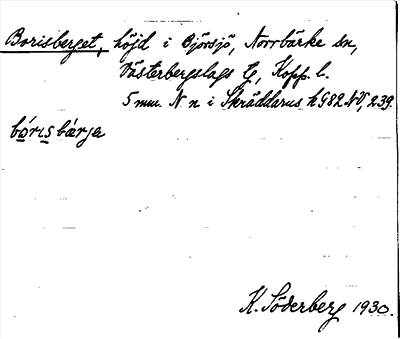 Borisberget, höjd i Björsjö, Norrbärke sn,
Västerbergslags tg, Kopp. l.
5 mm. N n i Skräddarus k 982 NV, 239.
bórısbærja
K. Söderberg 1930.